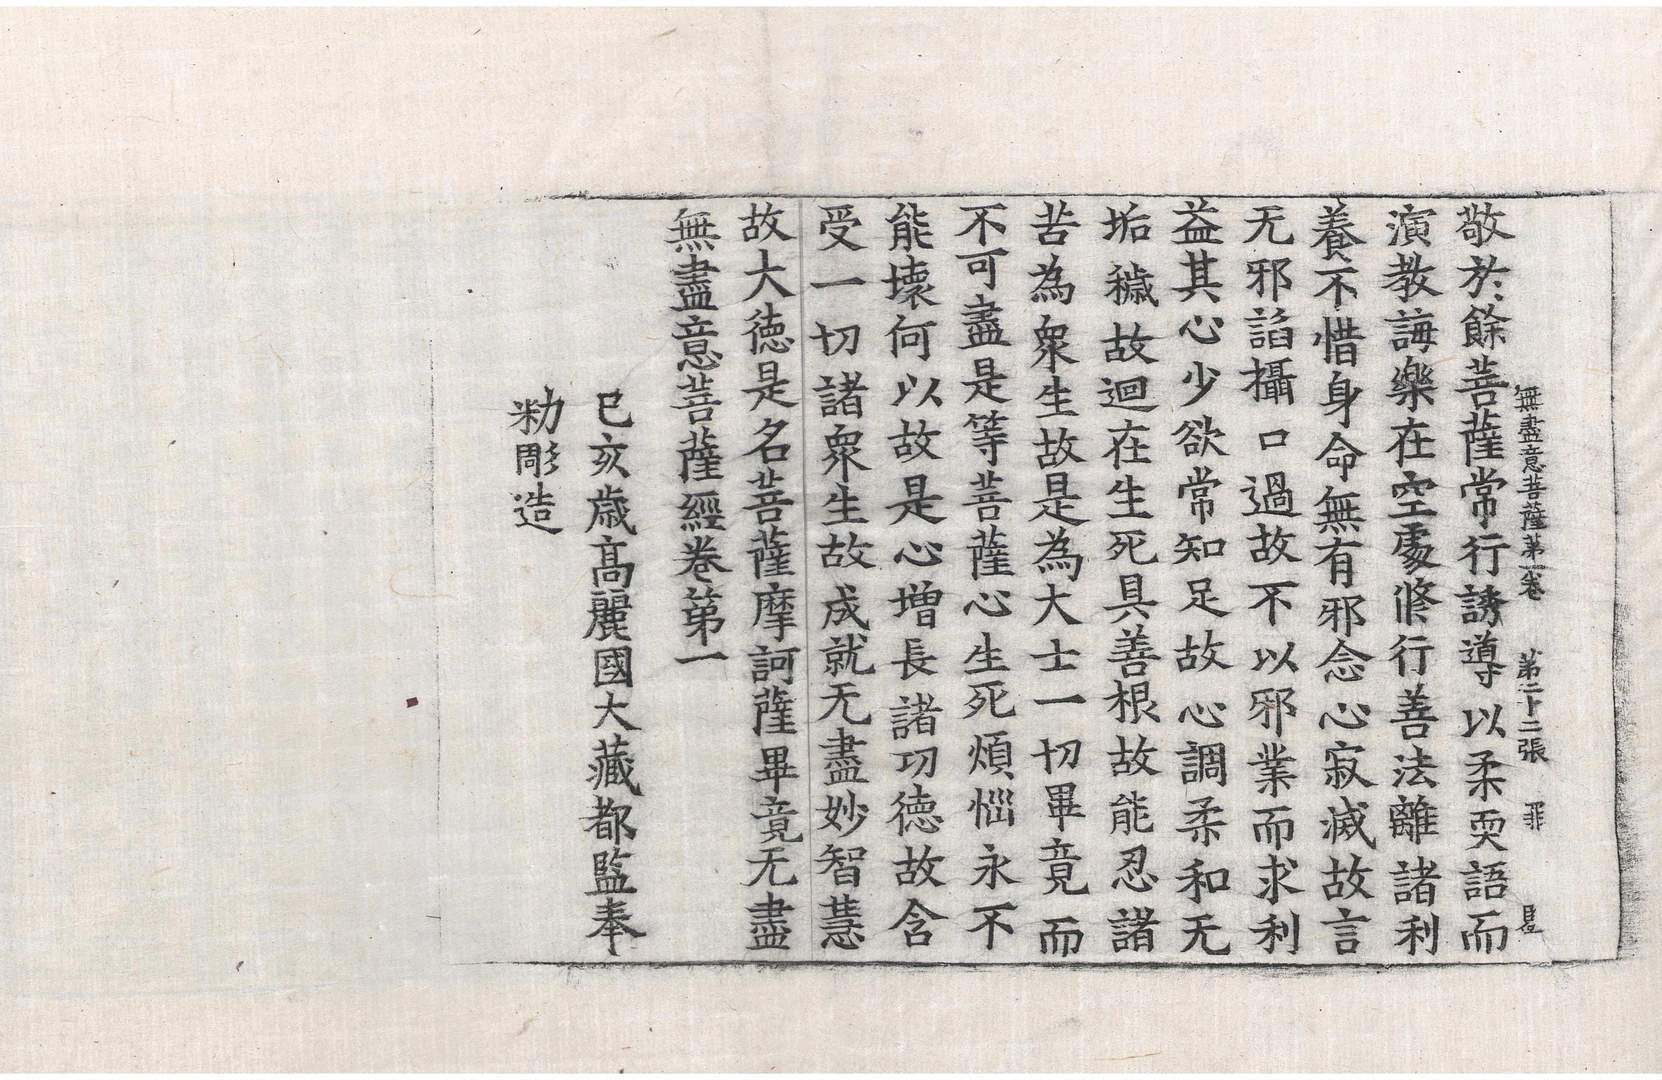 無盡意菩薩第一卷 第二十二張 罪
敬於餘菩薩常行誘導以柔耎語而
演教誨樂在空處脩行善法離諸利
養不惜身命無有邪念心寂滅故言
无邪諂攝口過故不以邪業而求利
益其心少欲常知足故心調柔和无
垢穢故迴在生死具善根故能忍諸
苦為衆生故是為大士一切畢竟而
不可盡是等菩薩心生死煩惱永不
能壞何以故是心增長諸功德故含
受一切諸衆生故成就无盡妙智慧
故大德是名菩薩摩訶薩畢竟无盡
無盡意菩薩經卷第一
己亥歲高麗國大藏都監奉
勑彫造